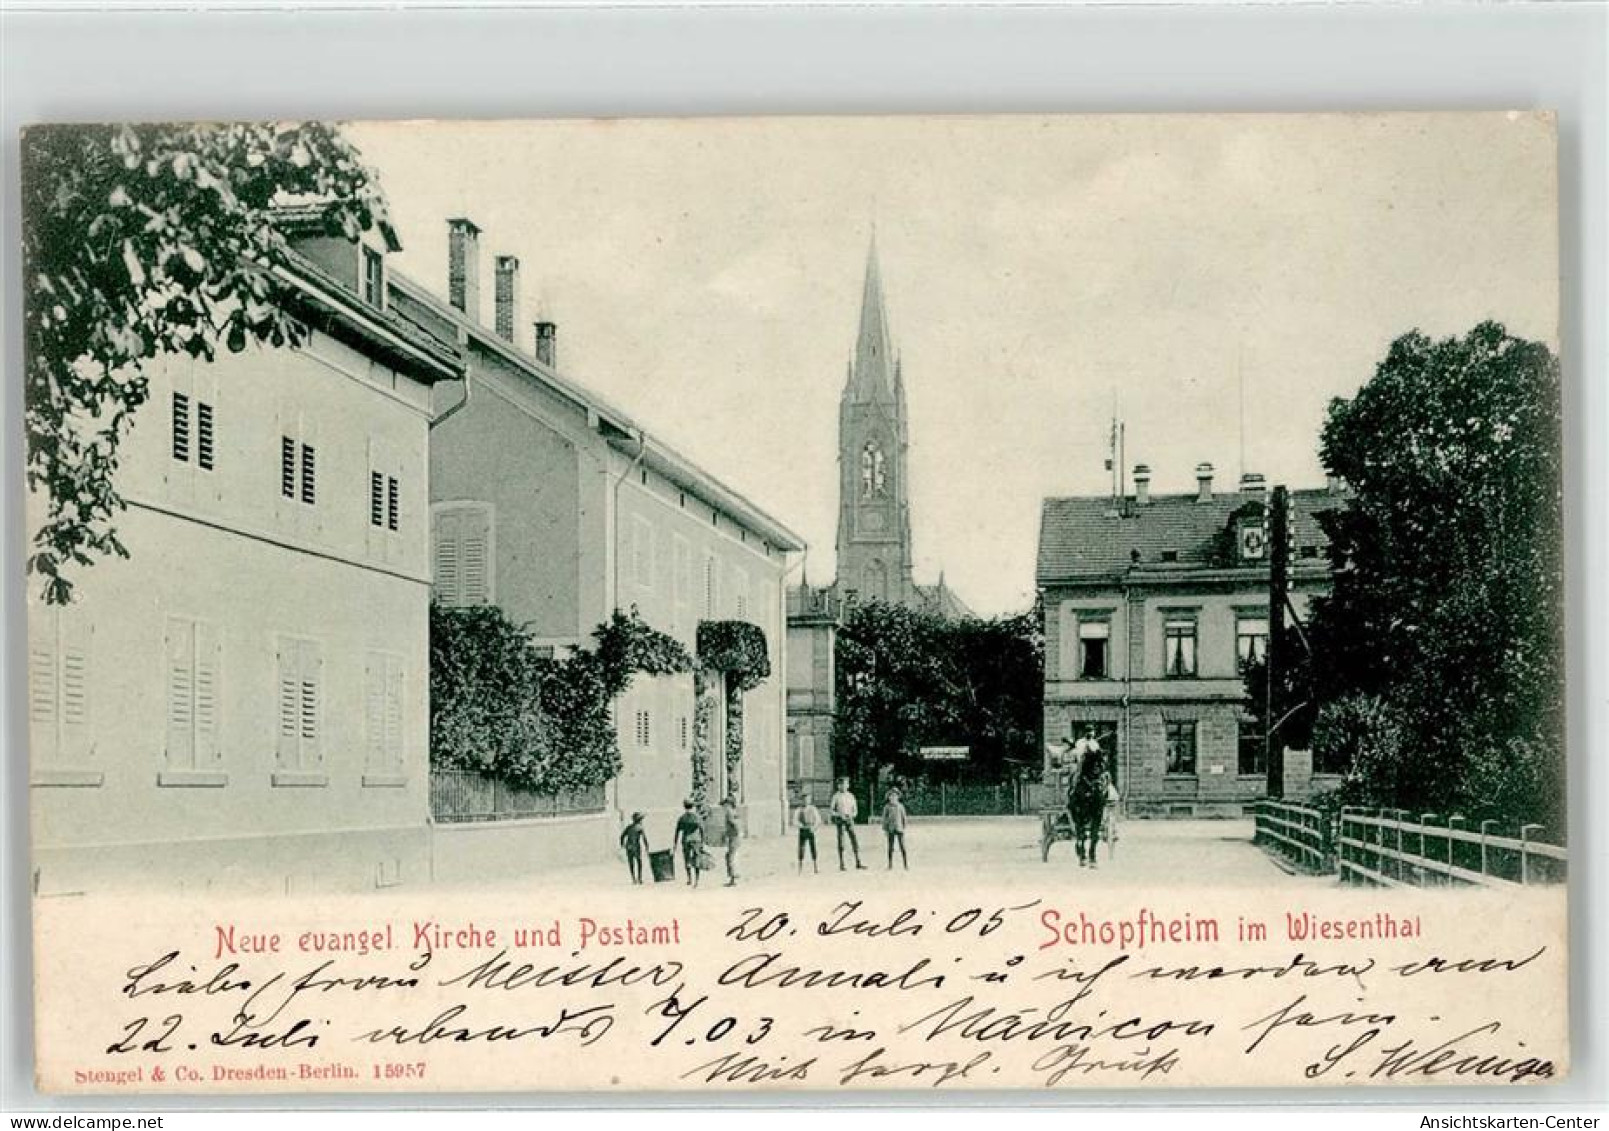 Neue evangel. Kirche und Postamt 20. Juli 05 Schopfheim im Wiesenthal
Liebe frau Meister, Annali u ich werden am
22. Juli abends 7.03 in Mänicon sein.
Mit herzl. Gruß S. Weniger
Stengel & Co. Dresden-Berlin. 15957
Ansichtskarten-Center